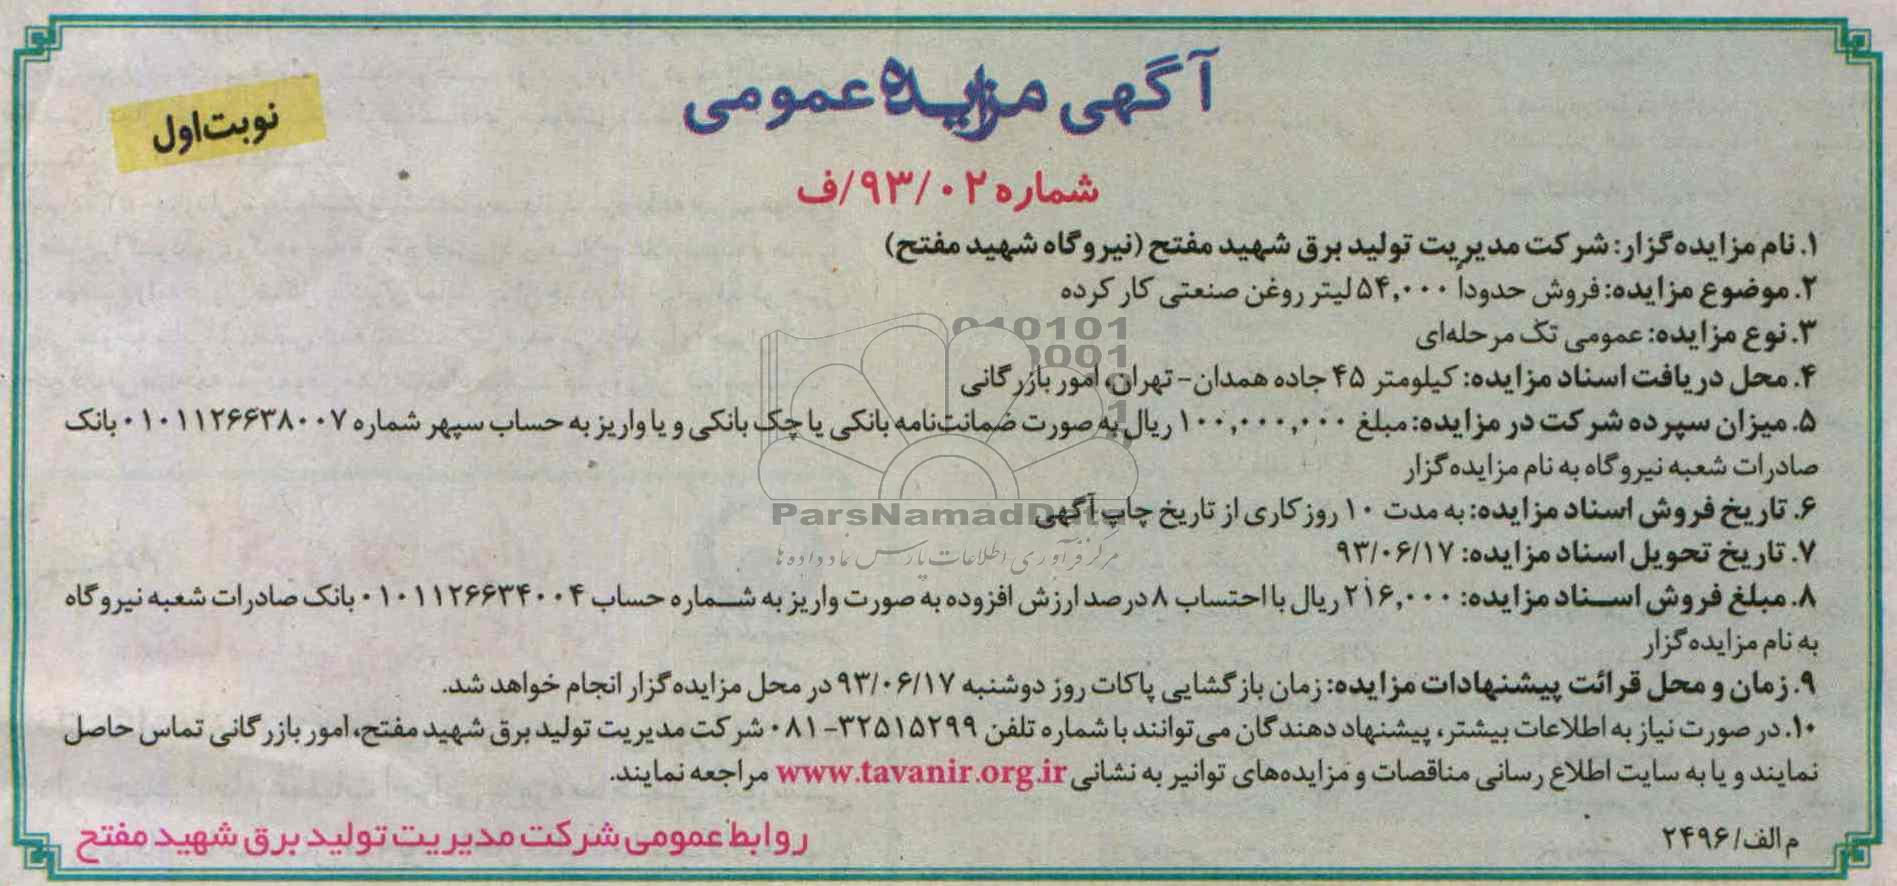 آگهی مزایده عمومی
نوبت اول
شماره ۹۳/۰۲/ف
۱. نام مزایده‌گزار: شرکت مدیریت تولید برق شهید مفتح (نیروگاه شهید مفتح)
۲. موضوع مزایده: فروش حدوداً ۵۴,۰۰۰ لیتر روغن صنعتی کار کرده
۳. نوع مزایده: عمومی تک مرحله‌ای
۴. محل دریافت اسناد مزایده: کیلومتر ۴۵ جاده همدان- تهران، امور بازرگانی
۵. میزان سپرده شرکت در مزایده: مبلغ ۱۰۰,۰۰۰,۰۰۰ ریال به صورت ضمانت‌نامه بانکی یا چک بانکی و یا واریز به حساب سپهر شماره ۰۱۰۱۱۲۶۶۳۸۰۰۷ بانک
صادرات شعبه نیروگاه به نام مزایده‌گزار
۶. تاریخ فروش اسناد مزایده: به مدت ۱۰ روز کاری از تاریخ چاپ آگهی
۷. تاریخ تحویل اسناد مزایده: ۹۳/۰۶/۱۷
۸. مبلغ فروش اسناد مزایده: ۲۱۶,۰۰۰ ریال با احتساب ۸ درصد ارزش افزوده به صورت واریز به شماره حساب ۰۱۰۱۱۲۶۶۳۴۰۰۴ بانک صادرات شعبه نیروگاه
به نام مزایده‌گزار
۹. زمان و محل قرائت پیشنهادات مزایده: زمان بازگشایی پاکات روز دوشنبه ۹۳/۰۶/۱۷ در محل مزایده‌گزار انجام خواهد شد.
۱۰. در صورت نیاز به اطلاعات بیشتر، پیشنهاد دهندگان می‌توانند با شماره تلفن ۳۲۵۱۵۲۹۹-۰۸۱ شرکت مدیریت تولید برق شهید مفتح، امور بازرگانی تماس حاصل
نمایند و یا به سایت اطلاع رسانی مناقصات و مزایده‌های توانیر به نشانی www.tavanir.org.ir مراجعه نمایند.
م الف/۲۴۹۶
روابط عمومی شرکت مدیریت تولید برق شهید مفتح
ParsNamadData
مرکز فرآوری اطلاعات پارس نماد داده ها